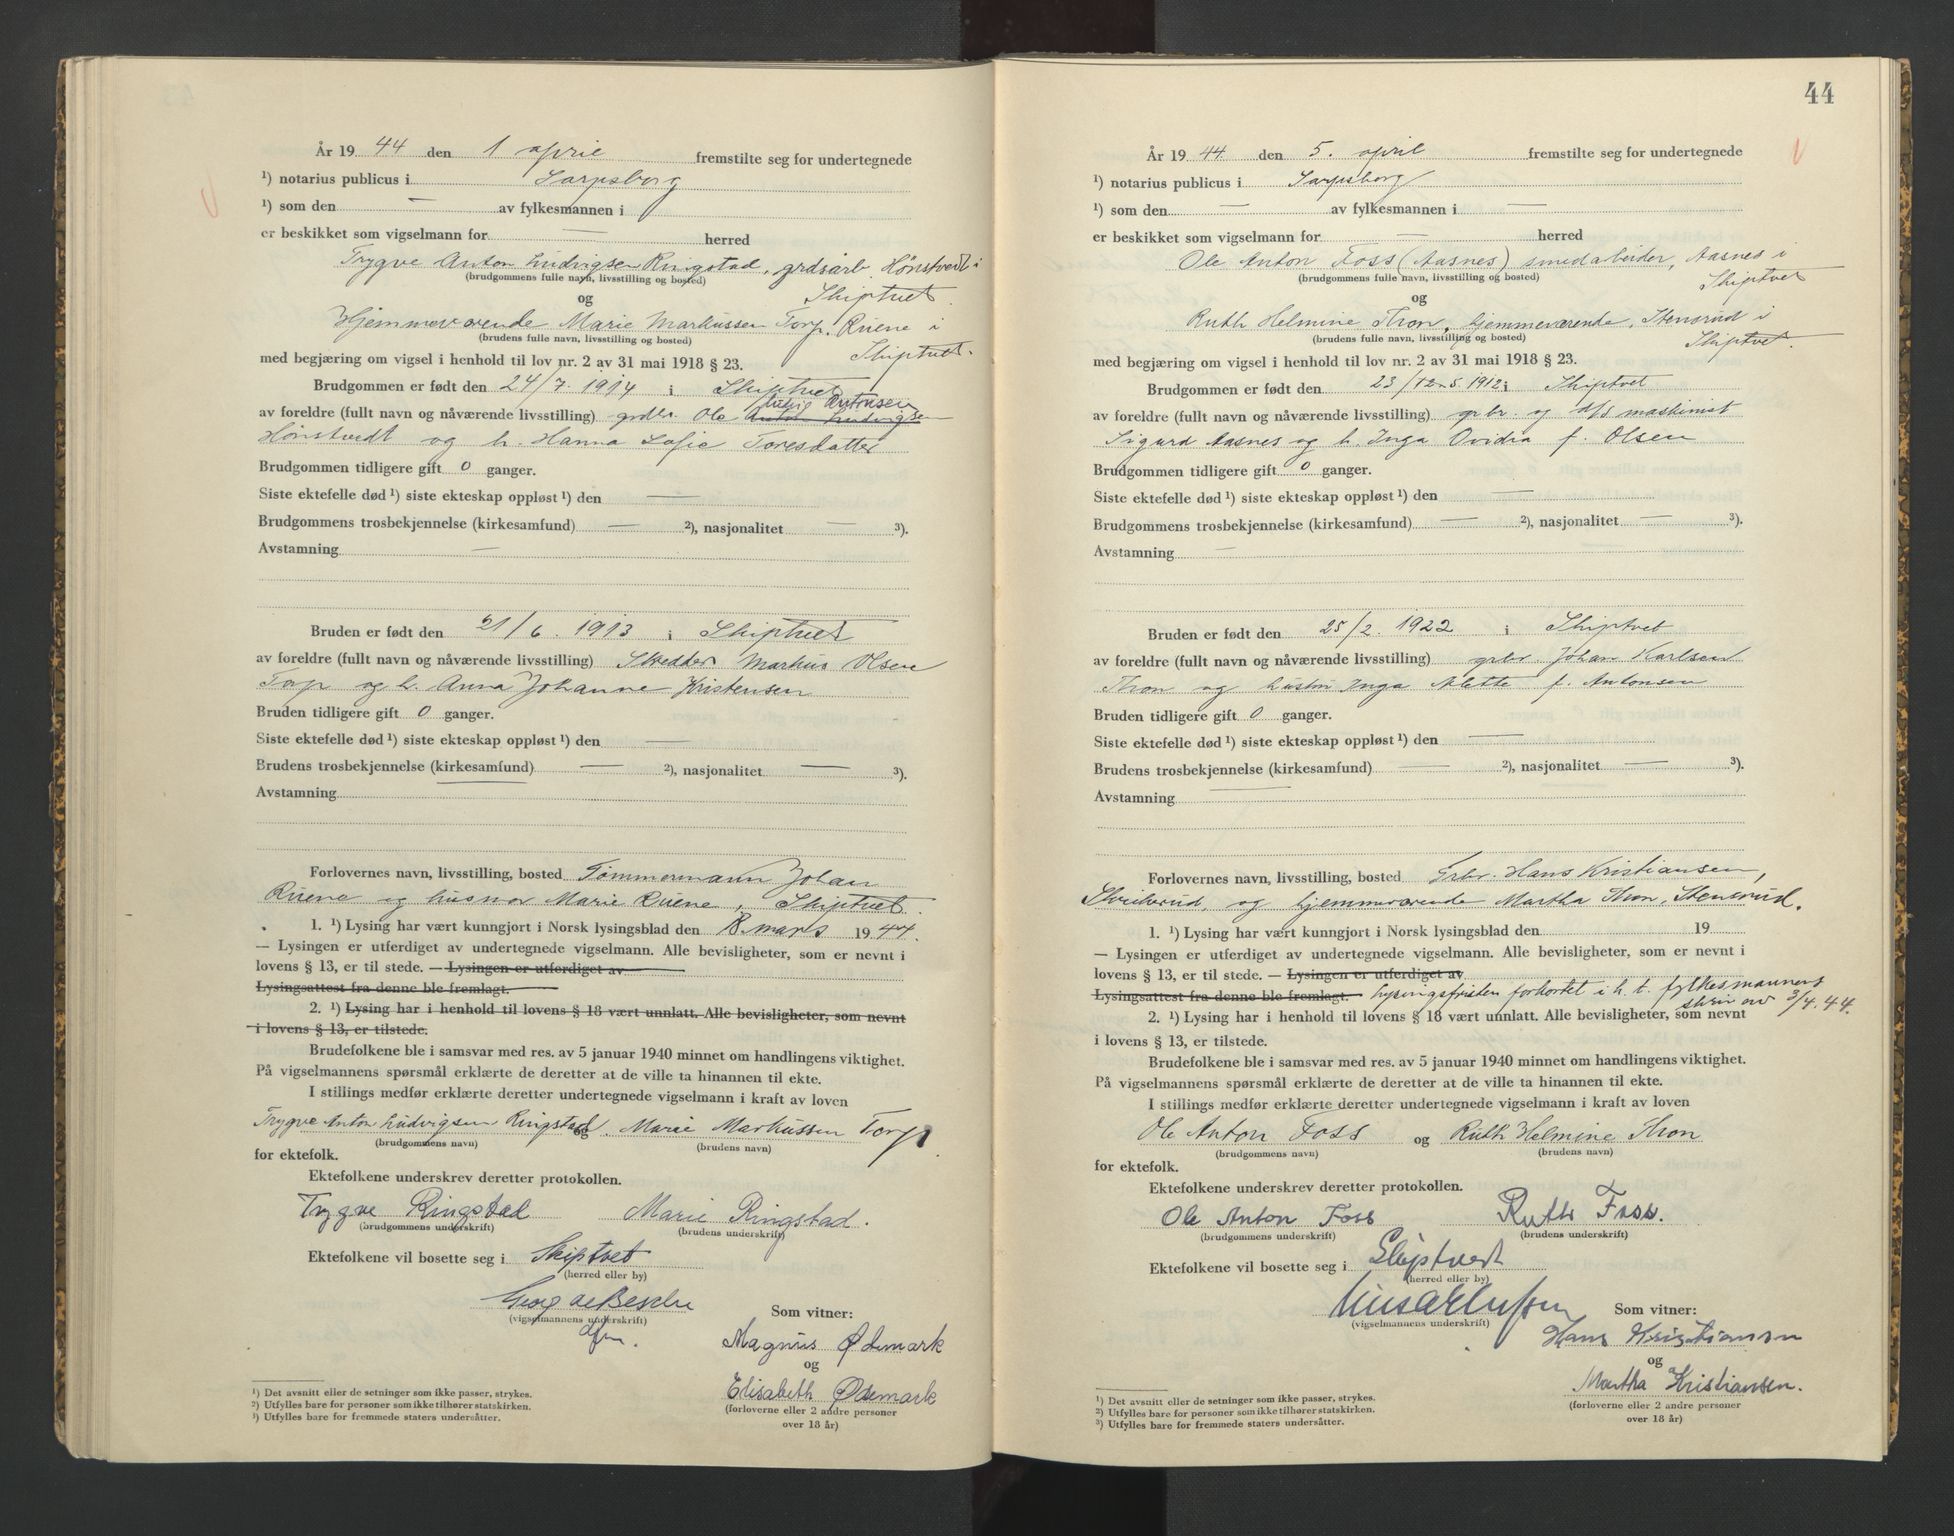 År 19 44 den 1 april fremstilte seg for undertegnede
¹) notarius publicus i Sarpsborg
¹) som den — av fylkesmannen i
er beskikket som vigselmann for — herred
Trygve Anton Ludvigsen Ringstad, grdsarb. Hønstvedt i
(brudgommens fulle navn, livsstilling og bosted)
og Skiptvet.
Hjemmeværende Marie Markussen Torp, Ruene i
(brudens fulle navn, livsstilling og bosted)
Skiptvet.
med begjæring om vigsel i henhold til lov nr. 2 av 31 mai 1918 § 23.
Brudgommen er født den 24/7. 1914 i Skiptvet
Antonsen
av foreldre (fullt navn og nåværende livsstilling) grdbr. Ole Ludvigsen
Hønstvedt og h. Hanna Sofie Toresdatter
Brudgommen tidligere gift 0 ganger.
Siste ektefelle død ¹) siste ekteskap oppløst ¹) den —
Brudgommens trosbekjennelse (kirkesamfund) — ²), nasjonalitet — ³).
Avstamning —
Bruden er født den 21/6. 1913 i Skiptvet
av foreldre (fullt navn og nåværende livsstilling) Skredder Markus Olsen
Torp og h. Anna Johanne Kristensen
Bruden tidligere gift 0 ganger.
Siste ektefelle død ¹) siste ekteskap oppløst ¹) den —
Brudens trosbekjennelse (kirkesamfund) — ²), nasjonalitet — ³).
Avstamning —
Forlovernes navn, livsstilling, bosted Tømmermann Johan
Ruene og husmor Marie Ruene, Skiptvet.
1. ¹) Lysing har vært kunngjort i Norsk lysingsblad den 18. mars 19 44.
— Lysingen er utferdiget av undertegnede vigselmann. Alle bevisligheter, som er nevnt i
lovens § 13, er til stede. — Lysingen er utferdiget av
Lysingsattest fra denne ble fremlagt.
2. ¹) Lysing har i henhold til lovens § 18 vært unnlatt. Alle bevisligheter, som nevnt
i lovens § 13, er tilstede.
Brudefolkene ble i samsvar med res. av 5 januar 1940 minnet om handlingens viktighet.
På vigselmannens spørsmål erklærte de deretter at de ville ta hinannen til ekte.
I stillings medfør erklærte deretter undertegnede vigselmann i kraft av loven
Trygve Anton Ludvigsen Ringstad og Marie Markussen Torp
(brudgommens navn) (brudens navn)
for ektefolk.
Ektefolkene underskrev deretter protokollen.
Trygve Ringstad Marie Ringstad.
(brudgommens underskrift) (brudens underskrift)
Ektefolkene vil bosette seg i Skiptvet
(herred eller by)
Georg de Besche
(vigselmannens underskrift)
Som vitner:
Magnus Ødemark
og
Elisabeth Ødemark
(forloverne eller 2 andre personer
over 18 år)
¹) Det avsnitt eller de setninger som ikke passer, strykes.
²) Utfylles bare for personer som ikke tilhører statskirken.
³) Utfylles bare for fremmede staters undersåtter.
44
År 19 44. den 5. april fremstilte seg for undertegnede
¹) notarius publicus i Sarpsborg
¹) som den — av fylkesmannen i —
er beskikket som vigselmann for — herred
Ole Anton Foss (Aasnes) smedarbeider, Aasnes i
(brudgommens fulle navn, livsstilling og bosted)
og Skiptvet
Ruth Helmine Thon, hjemmeværende, Stensrud i
(brudens fulle navn, livsstilling og bosted)
Skiptvet.
med begjæring om vigsel i henhold til lov nr. 2 av 31 mai 1918 § 23.
Brudgommen er født den 23/ 1912 i Skiptvet
av foreldre (fullt navn og nåværende livsstilling) grbr. og maskinist
Sigurd Aasnes og h. Inga Ovidia f. Olsen
Brudgommen tidligere gift 0 ganger.
Siste ektefelle død ¹) siste ekteskap oppløst ¹) den —
Brudgommens trosbekjennelse (kirkesamfund) — ²), nasjonalitet — ³).
Avstamning —
Bruden er født den 25/2. 1922 i Skiptvet
av foreldre (fullt navn og nåværende livsstilling) grbr. Johan Karlsen
Thon og hustru Inga Alette f. Antonsen
Bruden tidligere gift 0 ganger.
Siste ektefelle død ¹) siste ekteskap oppløst ¹) den —
Brudens trosbekjennelse (kirkesamfund) — ²), nasjonalitet — ³).
Avstamning —
Forlovernes navn, livsstilling, bosted Grbr. Hans Kristiansen,
Skrikerud, og hjemmeværende Martha Thon, Stensrud.
1. ¹) Lysing har vært kunngjort i Norsk lysingsblad den 19
— Lysingen er utferdiget av undertegnede vigselmann. Alle bevisligheter, som er nevnt i
lovens § 13, er til stede. — Lysingen er utferdiget av
Lysingsattest fra denne ble fremlagt. — Lysingsfristen forkortet i h. t. fylkesmannens
skriv av 3/4. 44.
2. ¹) Lysing har i henhold til lovens § 18 vært unnlatt. Alle bevisligheter, som nevnt
i lovens § 13, er tilstede.
Brudefolkene ble i samsvar med res. av 5 januar 1940 minnet om handlingens viktighet.
På vigselmannens spørsmål erklærte de deretter at de ville ta hinannen til ekte.
I stillings medfør erklærte deretter undertegnede vigselmann i kraft av loven
Ole Anton Foss og Ruth Helmine Thon
(brudgommens navn) (brudens navn)
for ektefolk.
Ektefolkene underskrev deretter protokollen.
Ole Anton Foss Ruth Foss.
(brudgommens underskrift) (brudens underskrift)
Ektefolkene vil bosette seg i Skiptvedt
(herred eller by)
(vigselmannens underskrift)
Som vitner:
Hans Kristiansen
og
Martha Kristiansen.
(forloverne eller 2 andre personer
over 18 år)
¹) Det avsnitt eller de setninger som ikke passer, strykes.
²) Utfylles bare for personer som ikke tilhører statskirken.
³) Utfylles bare for fremmede staters undersåtter.